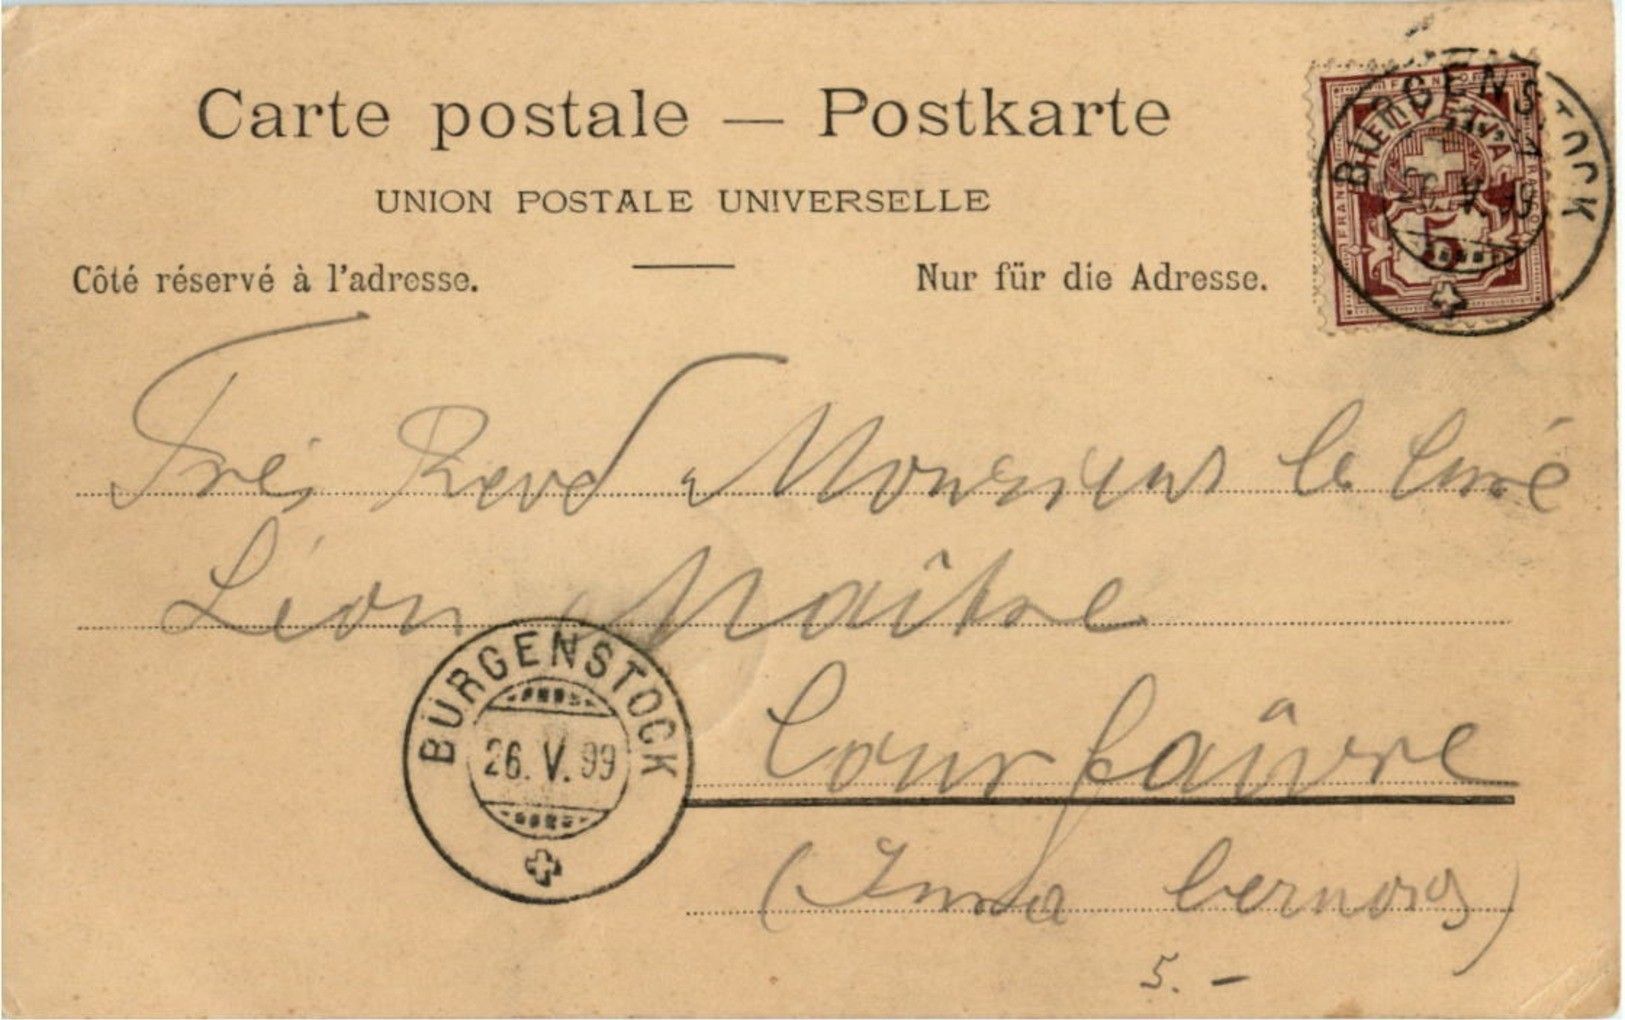 Carte postale — Postkarte
UNION POSTALE UNIVERSELLE
Côté réservé à l'adresse.
Nur für die Adresse.
FRANCO
HELVETIA
5
BÜRGENSTOCK
26. V. 99
Très Revd Monsieur le Curé
Léon Maître
BÜRGENSTOCK
26. V. 99
Courfaivre
(Jura bernois)
5. –